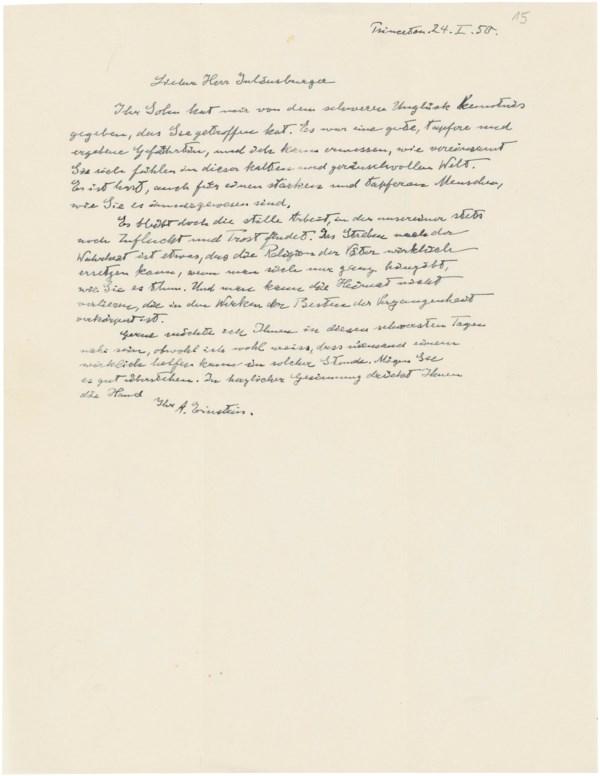 15
Princeton. 24. I. 50.
Lieber Herr
Ihr Sohn hat mir von dem schweren Unglück Kenntnis
gegeben, das Sie getroffen hat. Es war eine gute, tapfere und
ergebene Gefährtin, und ich kann ermessen, wie vereinsamt
Sie sich fühlen in dieser kalten und geräuschvollen Welt.
Es ist hart, auch für einen starken und tapferen Menschen,
wie Sie es immer gewesen sind.
Es bleibt doch die stille Arbeit, in der unsereiner stets
noch Zuflucht und Trost findet. Das Streben nach der
Wahrheit ist etwas, das die Religion der Väter wirklich
ersetzen kann, wenn man sich nur ganz hingibt,
wie Sie es thun. Und man kann die Heimat nicht
verlieren, die in den Werken der Besten der Vergangenheit
verkörpert ist.
Gerne möchte ich Ihnen in diesen schwersten Tagen
nahe sein, obwohl ich wohl weiss, dass niemand einem
wirklich helfen kann in solcher Stunde. Mögen Sie
es gut überstehen. In herzlicher Gesinnung drückt Ihnen
die Hand
Ihr A. Einstein.